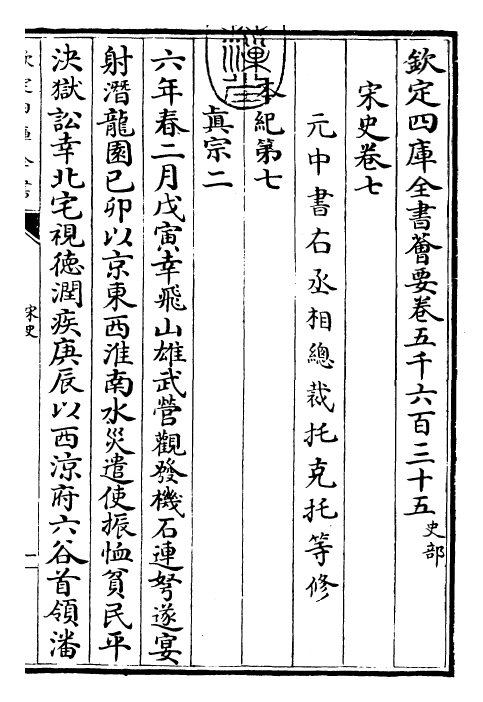 欽定四庫全書薈要卷五千六百三十五史部
宋史卷七
元中書右丞相總裁托克托等修
本紀第七
真宗二
六年春二月戊寅幸飛山雄武營觀發機石連弩遂宴
射潛龍園已卯以京東西淮南水災遣使振恤貧民平
決獄訟幸北宅視德潤疾庚辰以西涼府六谷首領潘
宋史